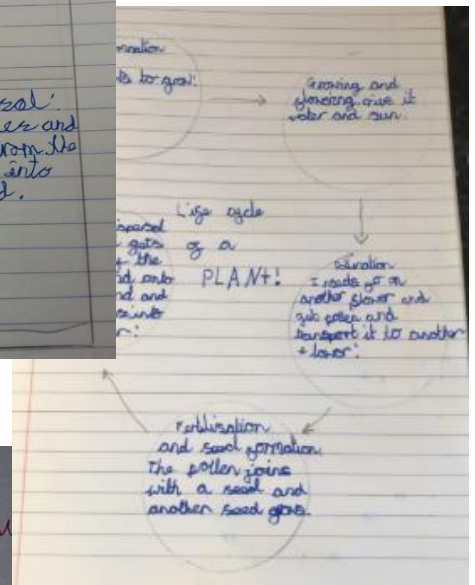 sal:
es and
rom the
into
d.
mation
ts to grow:
Growing and
flowering give it
water and sun.
Life cycle
of a
PLANT!
spersal
gets
the
d onto
nd and
into
r:
another flower and
get pollen and
transport it to another
Fertilisation
and seed formation
The pollen joins
with a seed and
another seed grows.